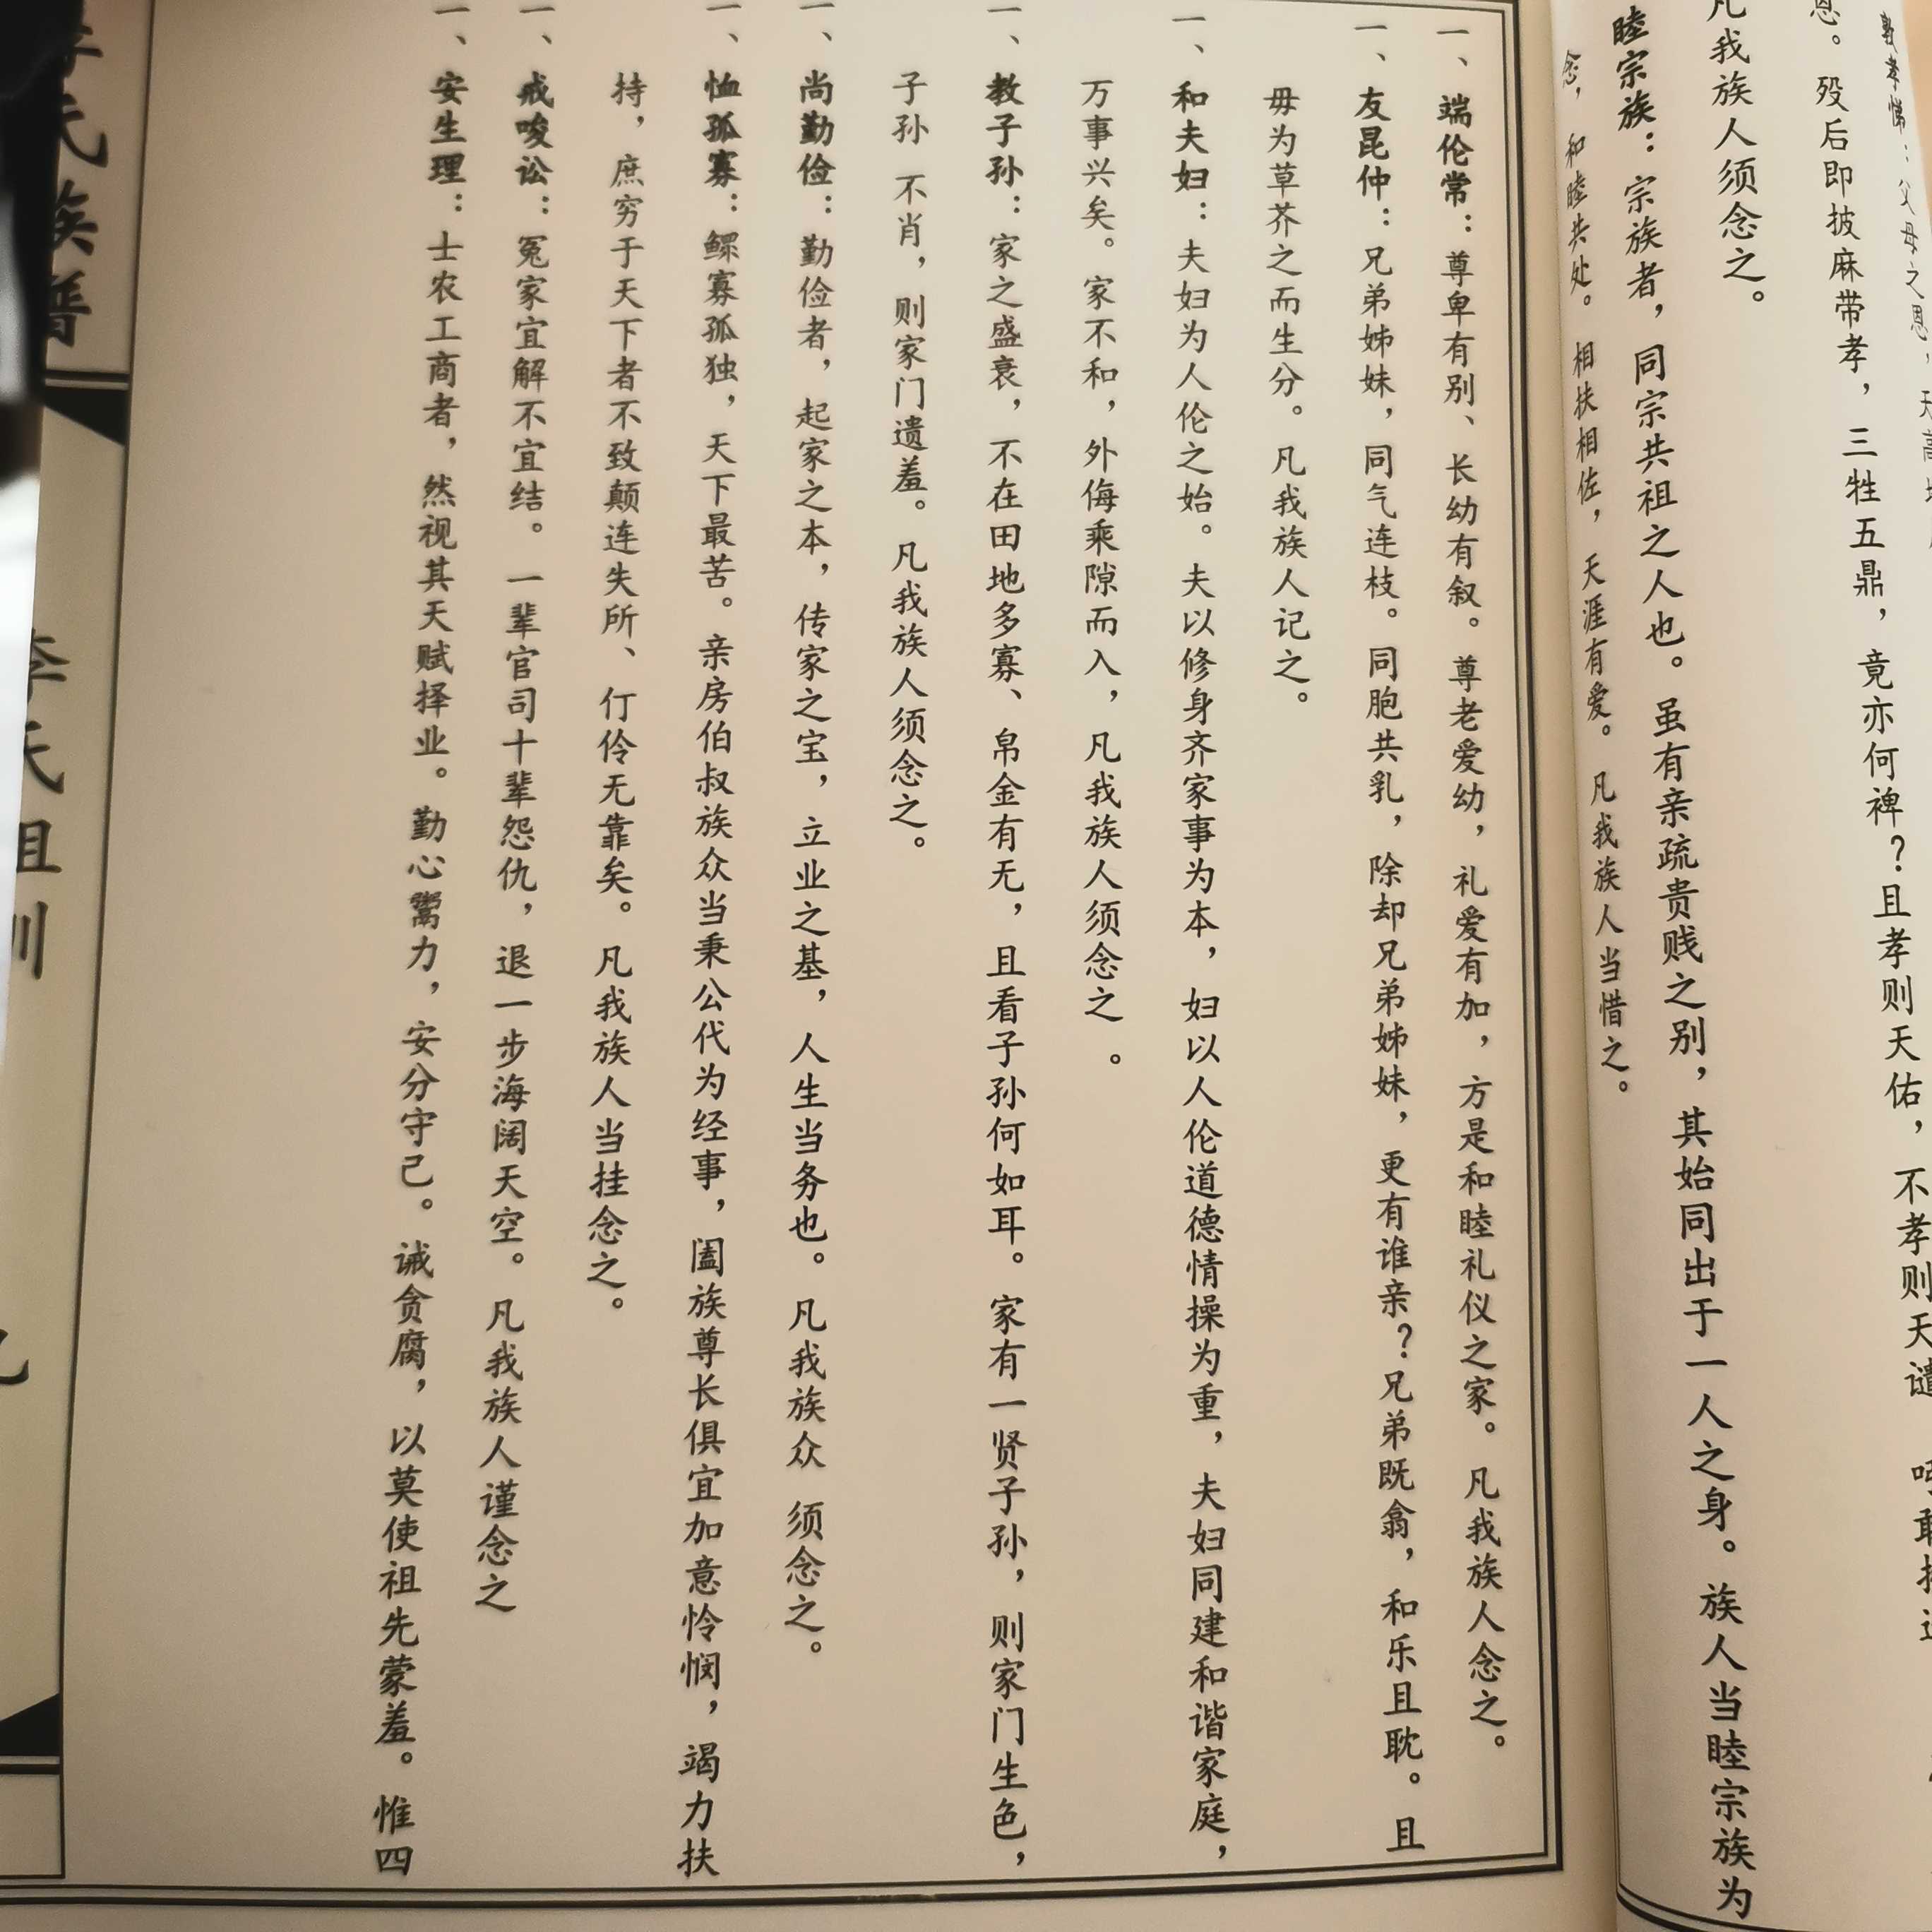 恩。殁后即披麻带孝，三牲五鼎，竟亦何裨？且孝则天佑，不孝则天谴
凡我族人须念之。
睦宗族：宗族者，同宗共祖之人也。虽有亲疏贵贱之别，其始同出于一人之身。族人当睦宗族为
念，和睦共处。相扶相佐，天涯有爱。凡我族人当惜之。
一、端伦常：尊卑有别、长幼有叙。尊老爱幼，礼爱有加，方是和睦礼仪之家。凡我族人念之。
一、友昆仲：兄弟姊妹，同气连枝。同胞共乳，除却兄弟姊妹，更有谁亲？兄弟既翕，和乐且耽。且
毋为草芥之而生分。凡我族人记之。
一、和夫妇：夫妇为人伦之始。夫以修身齐家事为本，妇以人伦道德情操为重，夫妇同建和谐家庭，
万事兴矣。家不和，外侮乘隙而入，凡我族人须念之。
一、教子孙：家之盛衰，不在田地多寡、帛金有无，且看子孙何如耳。家有一贤子孙，则家门生色，
子孙 不肖，则家门遗羞。凡我族人须念之。
一、尚勤俭：勤俭者，起家之本，传家之宝，立业之基，人生当务也。凡我族众 须念之。
一、恤孤寡：鳏寡孤独，天下最苦。亲房伯叔族众当秉公代为经事，阖族尊长俱宜加意怜悯，竭力扶
持，庶穷于天下者不致颠连失所、仃伶无靠矣。凡我族人当挂念之。
一、戒唆讼：冤家宜解不宜结。一辈官司十辈怨仇，退一步海阔天空。凡我族人谨念之
一、安生理：士农工商者，然视其天赋择业。勤心鬻力，安分守己。诫贪腐，以莫使祖先蒙羞。惟四
李氏族谱
李氏祖训